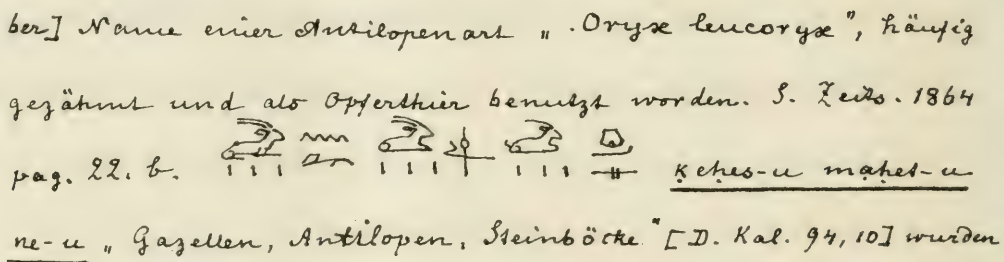 ber] Name einer Antilopenart „ Oryx leucoryx", häufig
gezähmt und als Opferthier benutzt worden. S. Zeits. 1864
pag. 22. b. ḳeḥes-u maḥet-u
ne-u „ Gazellen, Antilopen, Steinböcke" [D. Kal. 94, 10] wurden